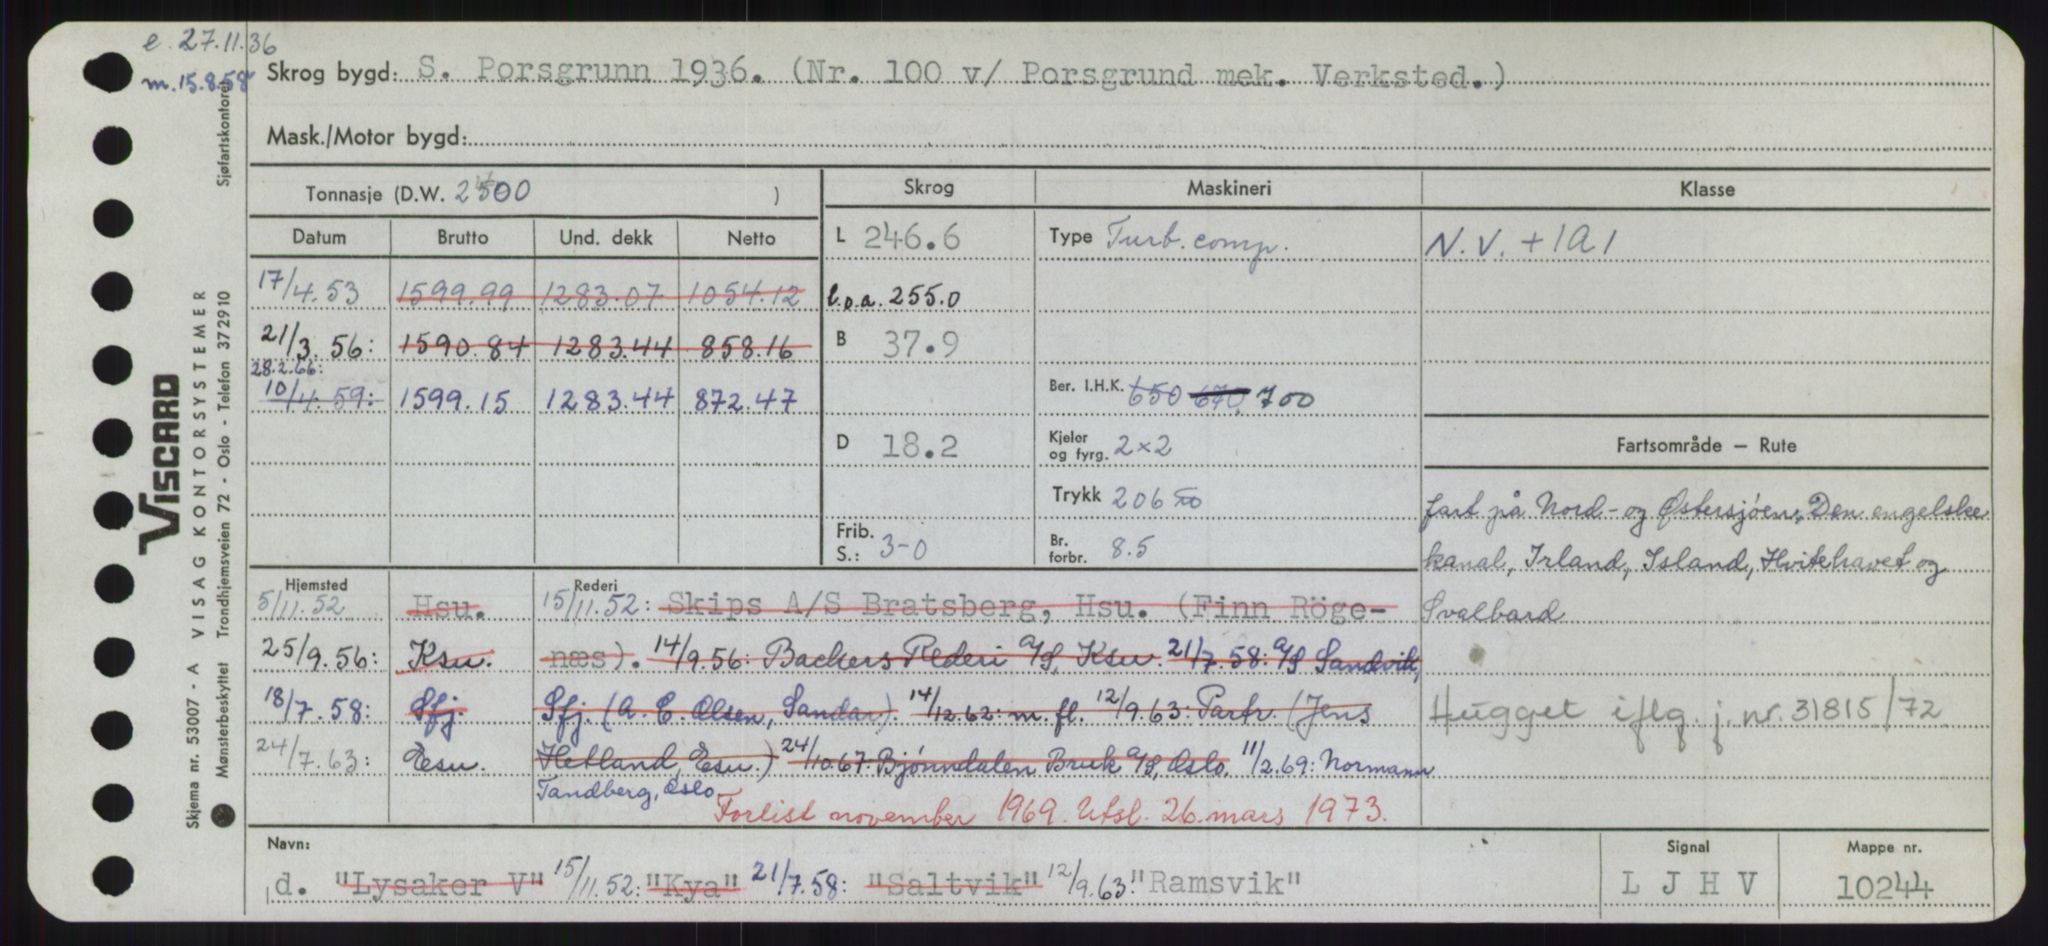 e. 27.11.36
m. 15.8.58
Sjøfartskontoret
Skrog bygd: S. Porsgrunn 1936. (Nr. 100 v/ Porsgrund mek. Verksted.)
Mask./Motor bygd:
Tonnasje (D.W. 2500 )
Skrog Maskineri Klasse
Datum Brutto Und. dekk Netto
L 246.6 Type Turb. comp. N.V. + 1A1
17/4.53 1599.99 1283.07 1054.12
l.o.a. 255.0
21/3.56: 1590.84 1283.44 858.16
B 37.9
28.2.66:
10/4.59: 1599.15 1283.44 872.47
Ber. I.H.K. 650 670 700
D 18.2 Kjeler og fyrg. 2×2
Fartsområde – Rute
Trykk 206
fart på Nord- og Østersjøen, Den engelske
Frib. S.: 3-0 Br. forbr. 8.5
kanal, Irland, Island, Hvitehavet og
Svalbard
Hjemsted Rederi
5/11.52 Hsu. 15/11.52: Skips A/S Bratsberg, Hsu. (Finn Röge-
25/9.56: Ksu. næs). 14/9.56: Backers Rederi A/S, Ksu. 21/7.58: A/S Sandvik,
18/7.58: Sfj. Sfj. (A. C. Olsen, Sandar). 14/12.62: m. fl. 12/9.63: Partr. (Jens
Hugget iflg. j. nr. 31815/72
24/7.63: Esu. Hetland, Esu.) 24/10.67: Bjönndalen Bruk A/S, Oslo. 11/2.69: Normann
Tandberg, Oslo
Forlist november 1969. Utsl. 26. mars 1973.
Navn: Signal Mappe nr.
d. "Lysaker V" 15/11.52: "Kya" 21/7.58: "Saltvik" 12/9.63: "Ramsvik" L J H V 10244
VISCARD
VISAG KONTORSYSTEMER
Trondhjemsveien 72 - Oslo - Telefon 372910
Skjema nr. 53007 - A
Mønsterbeskyttet